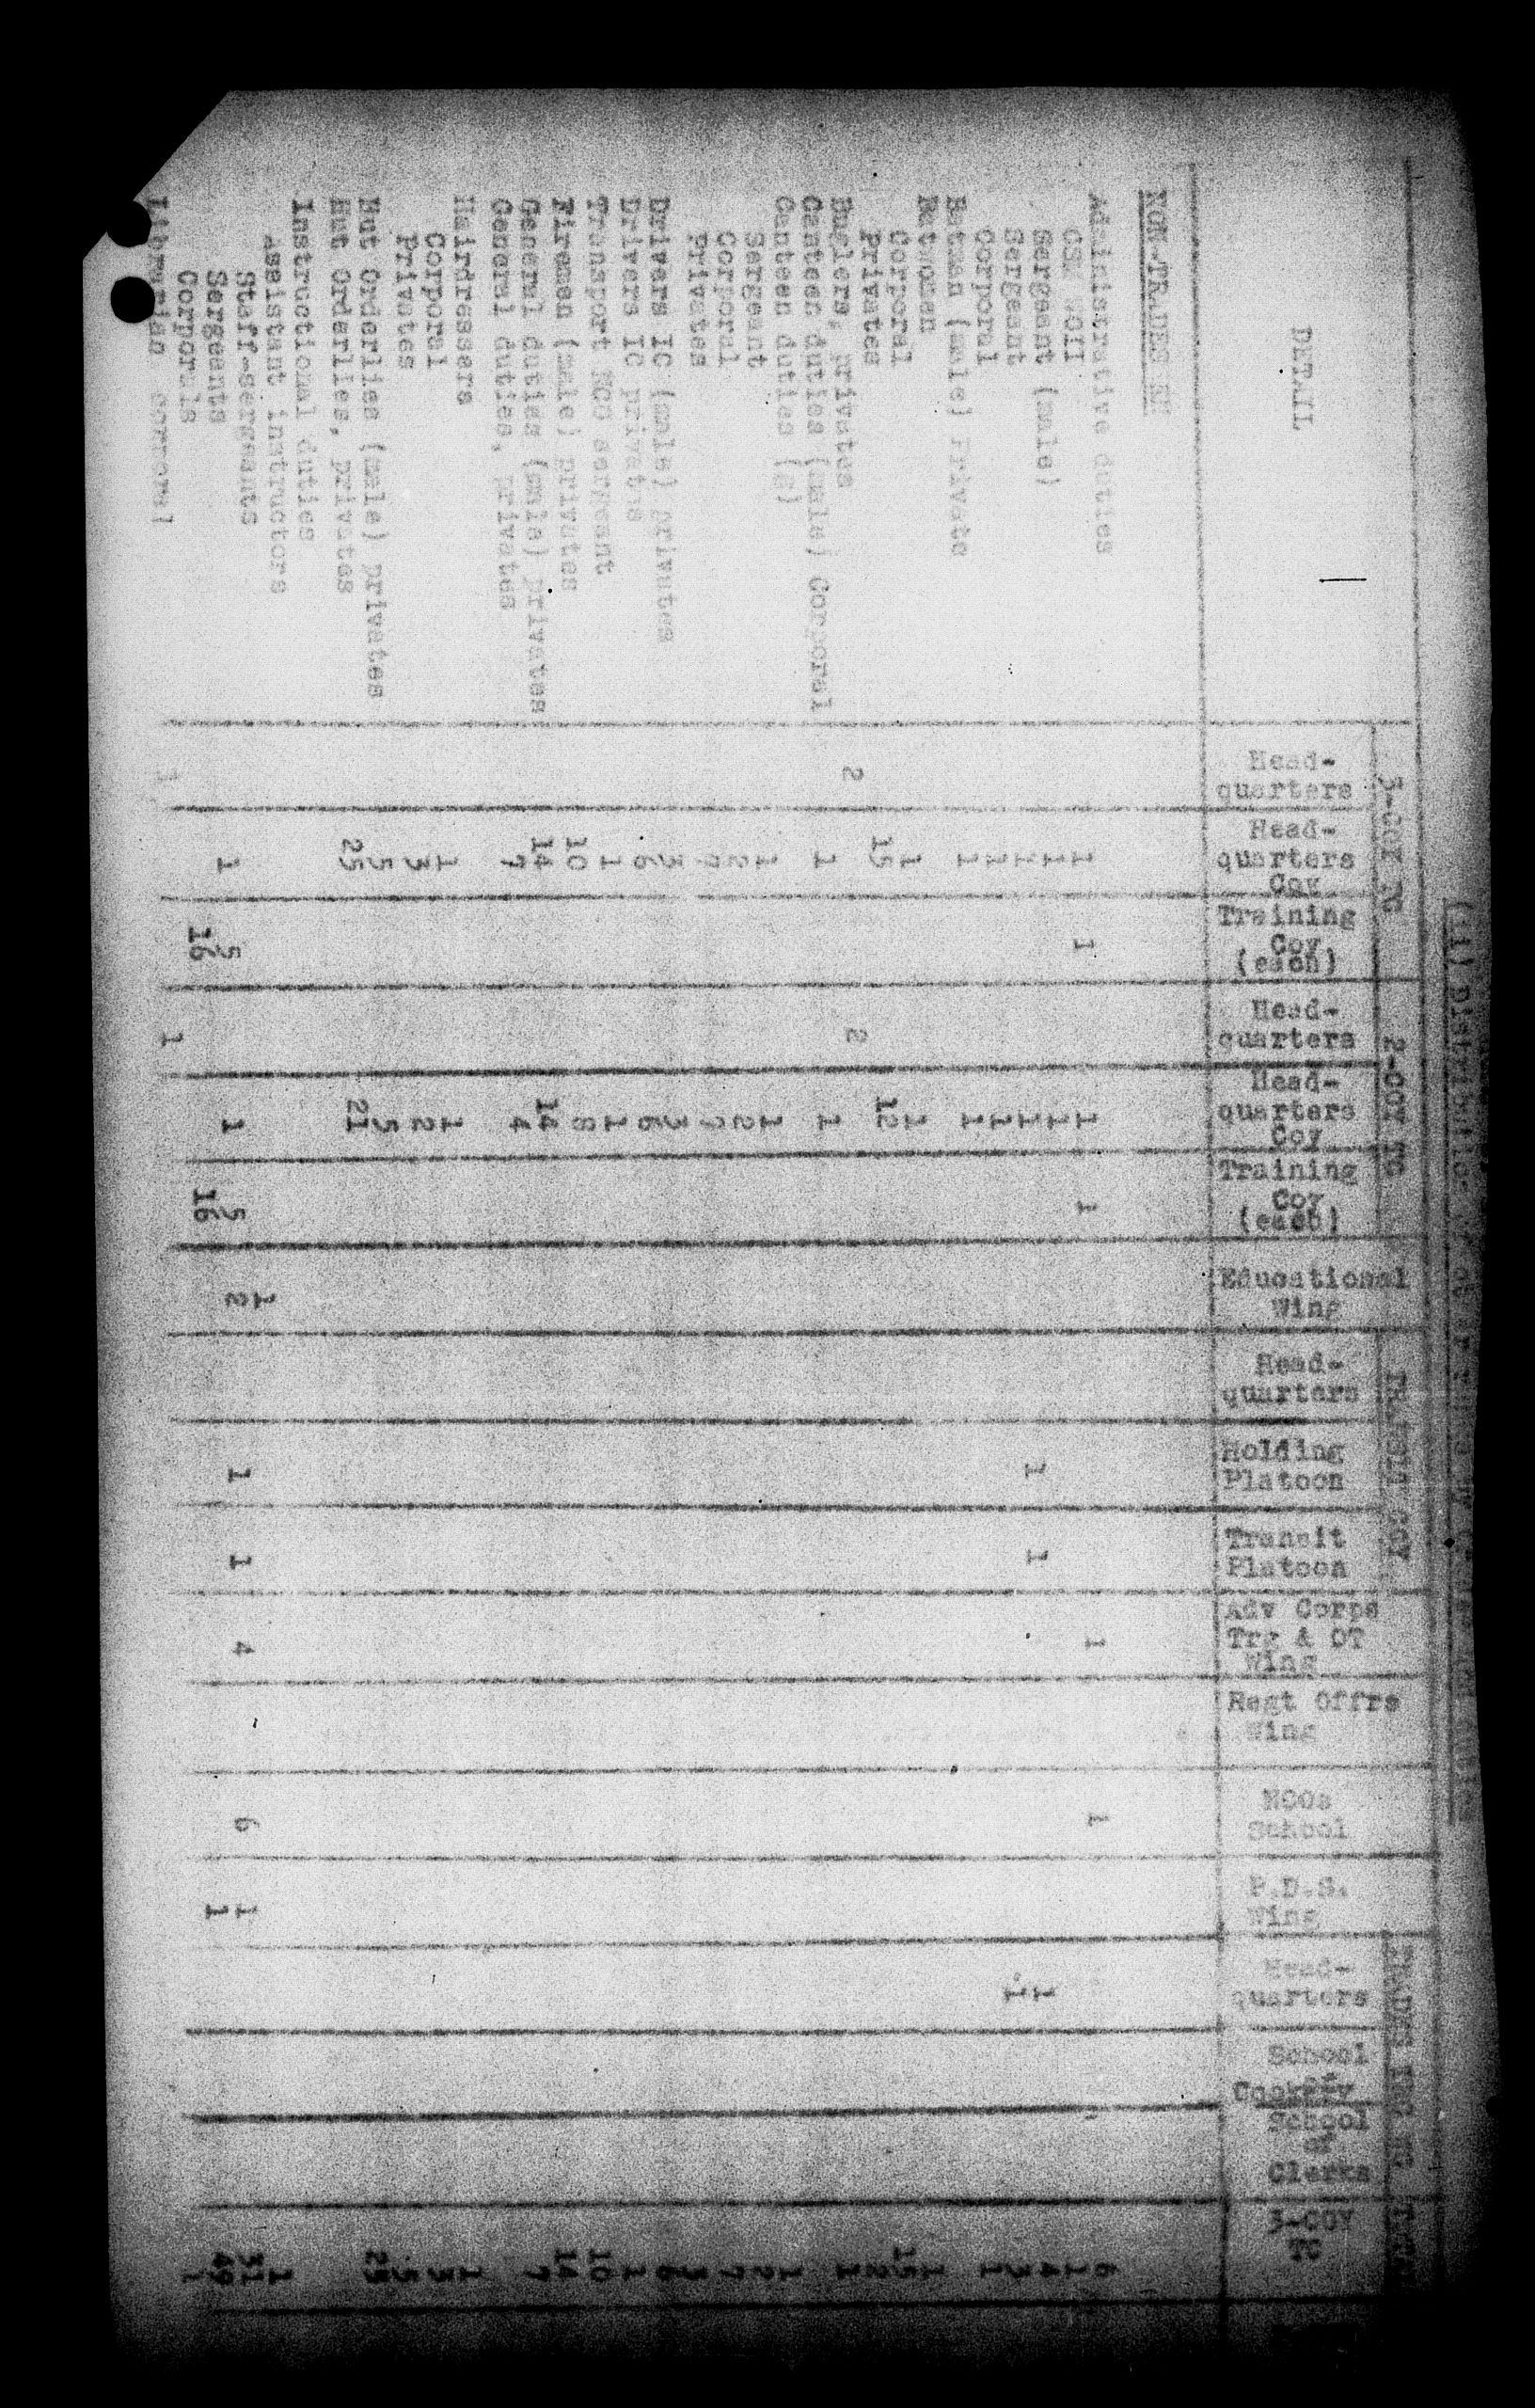 (ii) Distribution of other ranks by trades and duties
DETAIL
3-COY TC
2-COY TC
COY
3-COY TC
Head-quarters
Head-quarters Coy
Training Coy (each)
Head-quarters
Head-quarters Coy
Training Coy (each)
Educational Wing
Head-quarters
Holding Platoon
Transit Platoon
Adv Corps Trg & DT Wing
Regt Offrs Wing
NCOs School
P.D.S. Wing
Head-quarters
School of Cookery
School of Clerks
NON-TRADESMEN
Administrative duties 6
CSM WOII 1 1 1 1 1 1 1
Sergeant (male) 1 1 1
Sergeant 1 1 1 1 1 4
Corporal 1 1 1
Batmen (male) private 1 1 1
Batwomen
Corporal 1 1 1
Privates 15 12 15
Buglers, privates 2 2 2
Canteen duties (male) Corporal 1 1 1
Canteen duties
Sergeant 1 1 1
Corporal 2 2 2
Privates 7
Drivers IC (male) privates 3 3 3
Drivers IC privates 6 6 6
Transport NCO sergeant 1 1 1
Firemen (male) privates 10 8 10
General duties (male) privates 14 14 14
General duties, privates 7 4 7
Hairdressers
Corporal 1 1 1
Privates 3 2 3
Hut Orderlies (male) privates 5 5 5
Hut Orderlies, privates 25 21 25
Instructional duties
Assistant instructors
Staff-sergeants 1 1
Sergeants 1 5 1 5 2 1 1 4 6 1 31
Corporals 16 16 1 49
Librarian corporal 1 1 1